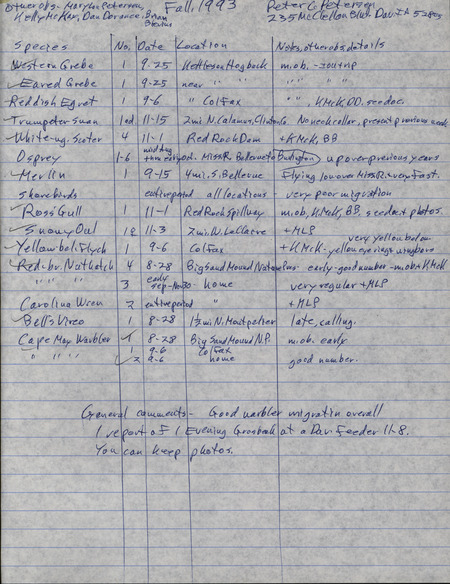 Other obs- MaryLou Petersen, Fall, 1993 Peter C. Petersen
Kelly McKay, Dan Dorance, Brian 235 McClellan Blvd. Dav. IA 52803
Species No. Date Location Notes, other obs, details
Western Grebe 1 9-25 Kettleson Hogback m.ob. - IOU trip
Eared Grebe 1 9-25 near " "
Reddish Egret 1 9-6 " Colfax " ", KMcK, DD, see doc.
Trumpeter Swan 1ad 11-15 2mi N. Calamus, Clinton Co No neck collar, present previous week
White-wg. Scoter 4 11-1 Red Rock Dam + KMcK, BB
Osprey 1-6 mid Aug thru early Oct. Miss R. Bellevue to Burlington, up over previous years
Merlin 1 9-25 4 mi. S. Bellevue Flying low over Miss R. very fast.
Shorebirds entire period all locations - very poor migration
Ross Gull 1 11-1 Red Rock Spillway m.ob, KMcK, BB, see doc + photos.
Snowy Owl 1♀ 11-3 2 mi. N. LeClaire + MLP
Yellow-bel. Flych 1 9-6 Colfax + KMcK - yellow eye ring + wingbars
very yellow below
Red-br. Nuthatch 4 8-28 Big Sand Mound Nature Pres. early-good number - mob + KMcK
" " " 3 early Sep-Nov 30 - home very regular + MLP
Carolina Wren 2 entire period " + MLP
Bell's Vireo 1 8-28 1½ mi N. Montpelier late, calling.
Cape May Warbler 1 8-28 Big Sand Mound N.P. m.ob. early
" " " 1 9-6 Colfax
2 9-6 home good number.
General comments - Good warbler migration overall
1 report of 1 Evening Grosbeak at a Dav. Feeder 11-8.
You can keep photos.